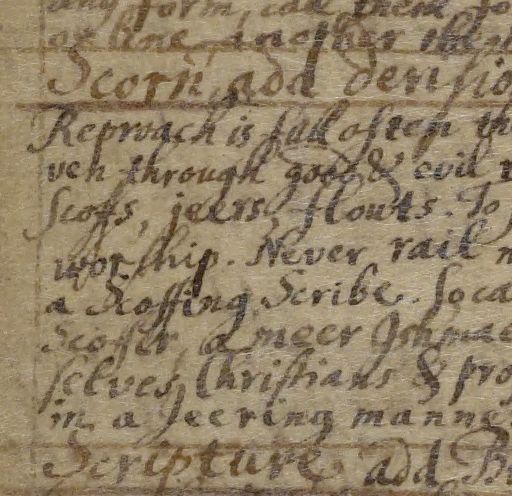 any form, call them
or line another
Scorn, add derisio
Reproach is full often th
ven through good & evil r
Scoffs, jeers, flouts. To
worship. Never rail
a Scoffing Scribe. So ca
Scoffer, a meer Ishmae
selves Christians & prof
in a Jeering manne
Scripture add